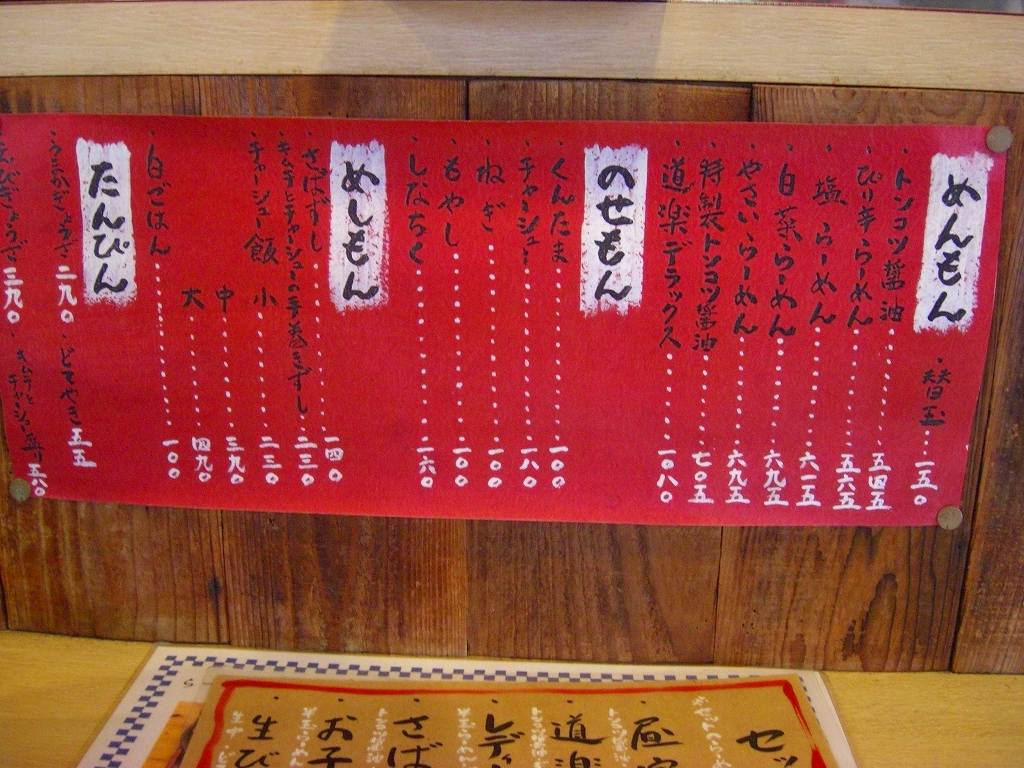 めんもん
替玉・・・一五〇
・トンコツ醤油・・・五四五
・ぴり辛らーめん・・・五六五
・塩らーめん・・・六一五
・白菜らーめん・・・六九五
・やさいらーめん・・・六九五
・特製トンコツ醤油・・・七〇五
・道楽デラックス・・・一〇八〇
のせもん
・くんたま・・・一〇〇
・チャーシュー・・・一八〇
・ねぎ・・・一〇〇
・もやし・・・一〇〇
・しなちく・・・一六〇
めしもん
・さばずし・・・一四〇
・キムチとチャーシューの手巻きずし・・・二三〇
・チャーシュー飯 小・・・二三〇
中・・・三九〇
大・・・四九〇
・白ごはん・・・一〇〇
たんぴん
二九〇
・どてやき 五五
・えびぎょうざ 三九〇
・キムチとチャーシュー盛り 五八〇
セッ
道楽
レディ
さば
お子
生び